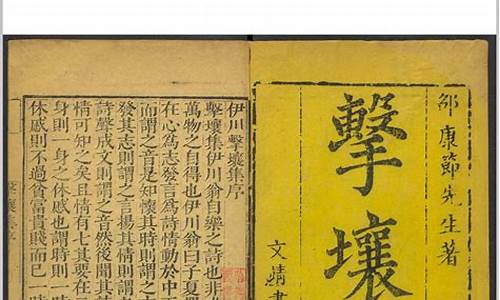 邵康節先生著
擊壤
文靖書
伊川擊壤集序
擊壤集伊川翁自樂之詩也非
萬物之自得也伊川翁曰子夏謂
在心爲志發言爲詩情動於中
而謂之音是知懷其時則謂
發其志則謂之言揚其情則謂
詩聲成文則謂之音然後聞其
情可知之矣且情有七其要在
身則一身之休慼也謂時則一時
休慼則不過貧富貴賤而已一時